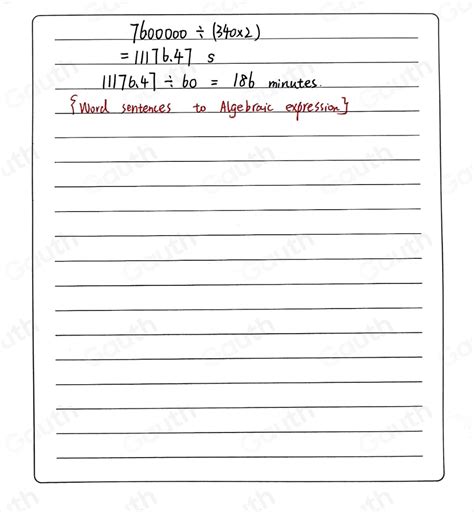 7600000 ÷ (340x2)
= 11176.47 s
11176.47 ÷ 60 = 186 minutes.
{Word sentences to Algebraic expression}